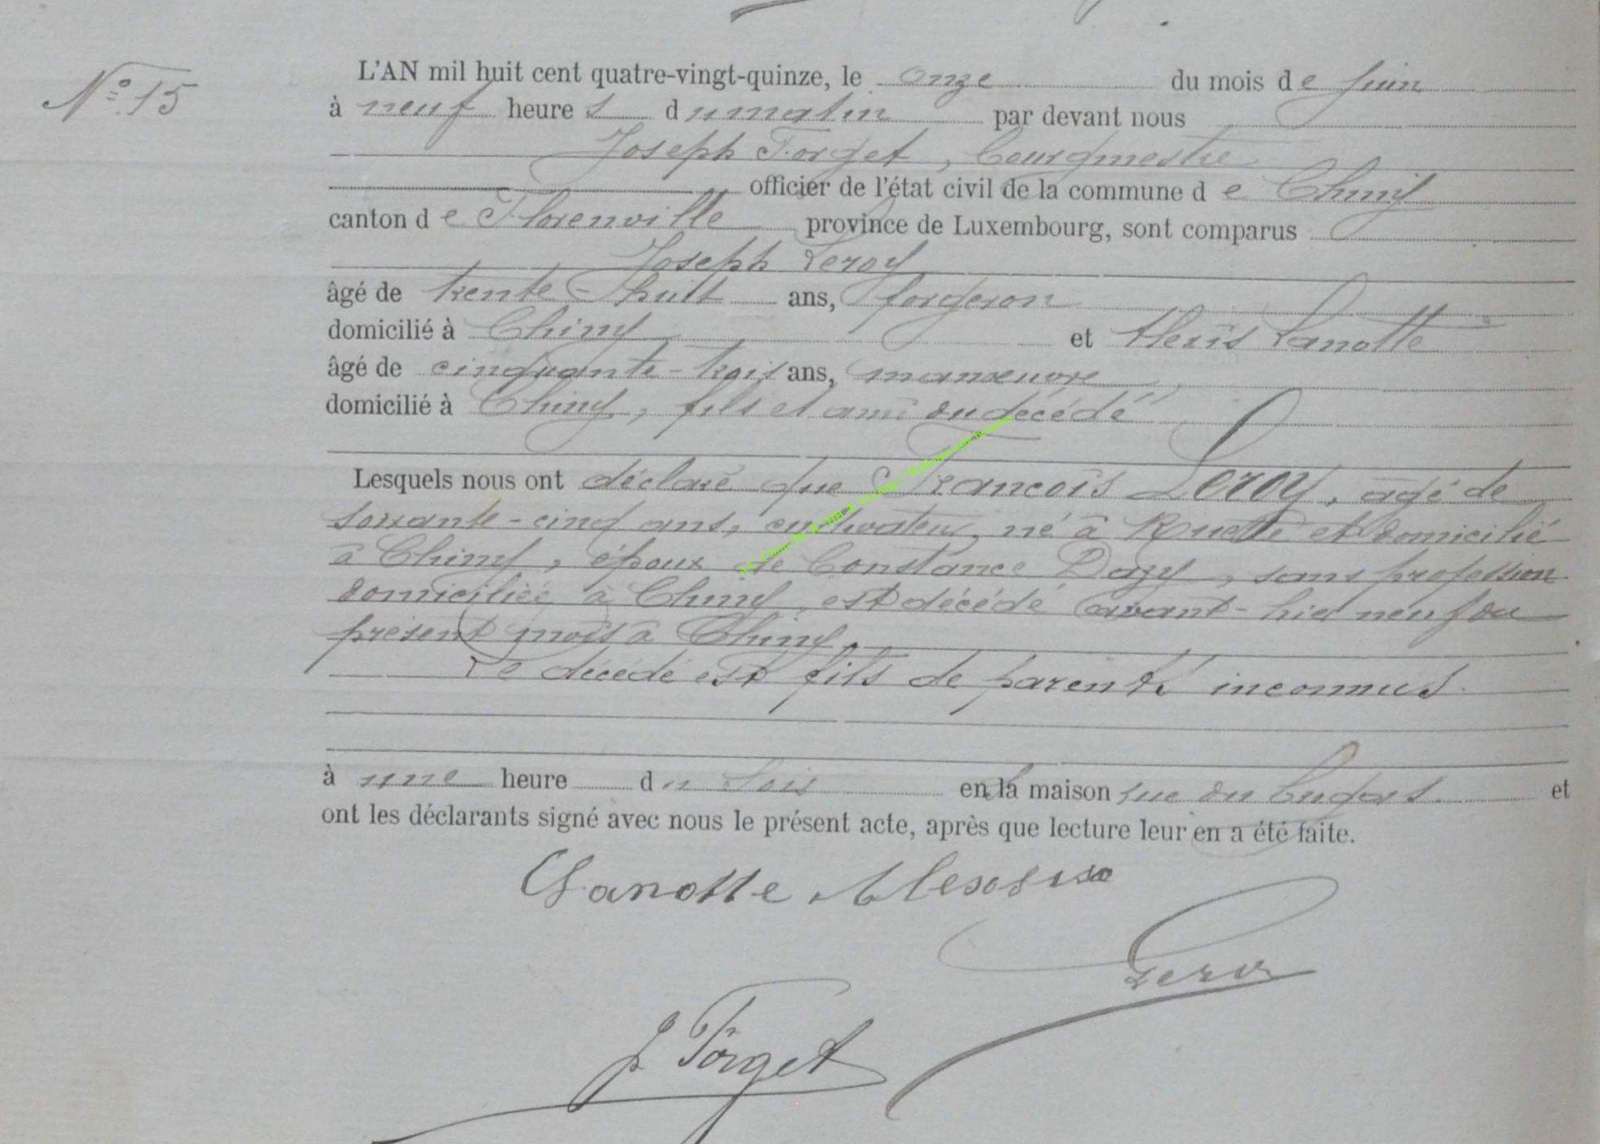 N° 15
L'AN mil huit cent quatre-vingt-quinze, le onze du mois de juin
à neuf heures du matin par devant nous
Joseph Forget, bourgmestre
officier de l'état civil de la commune de Chiny
canton de Florenville province de Luxembourg, sont comparus
Joseph Leroy
âgé de trente-huit ans, forgeron
domicilié à Chiny et Alexis Lanotte
âgé de cinquante-trois ans, manœuvre,
domicilié à Chiny, fils et ami du décédé
Lesquels nous ont déclaré que François Leroy, âgé de
soixante-cinq ans, cultivateur, né à Ruette et domicilié
à Chiny, époux de Constance Dazy, sans profession
domiciliée à Chiny, est décédé avant-hier neuf du
présent mois à Chiny.
Le décédé est fils de parents inconnus.
à une heure du soir en la maison rue du
et
ont les déclarants signé avec nous le présent acte, après que lecture leur en a été faite.
Lanotte
Leroy
J Forget